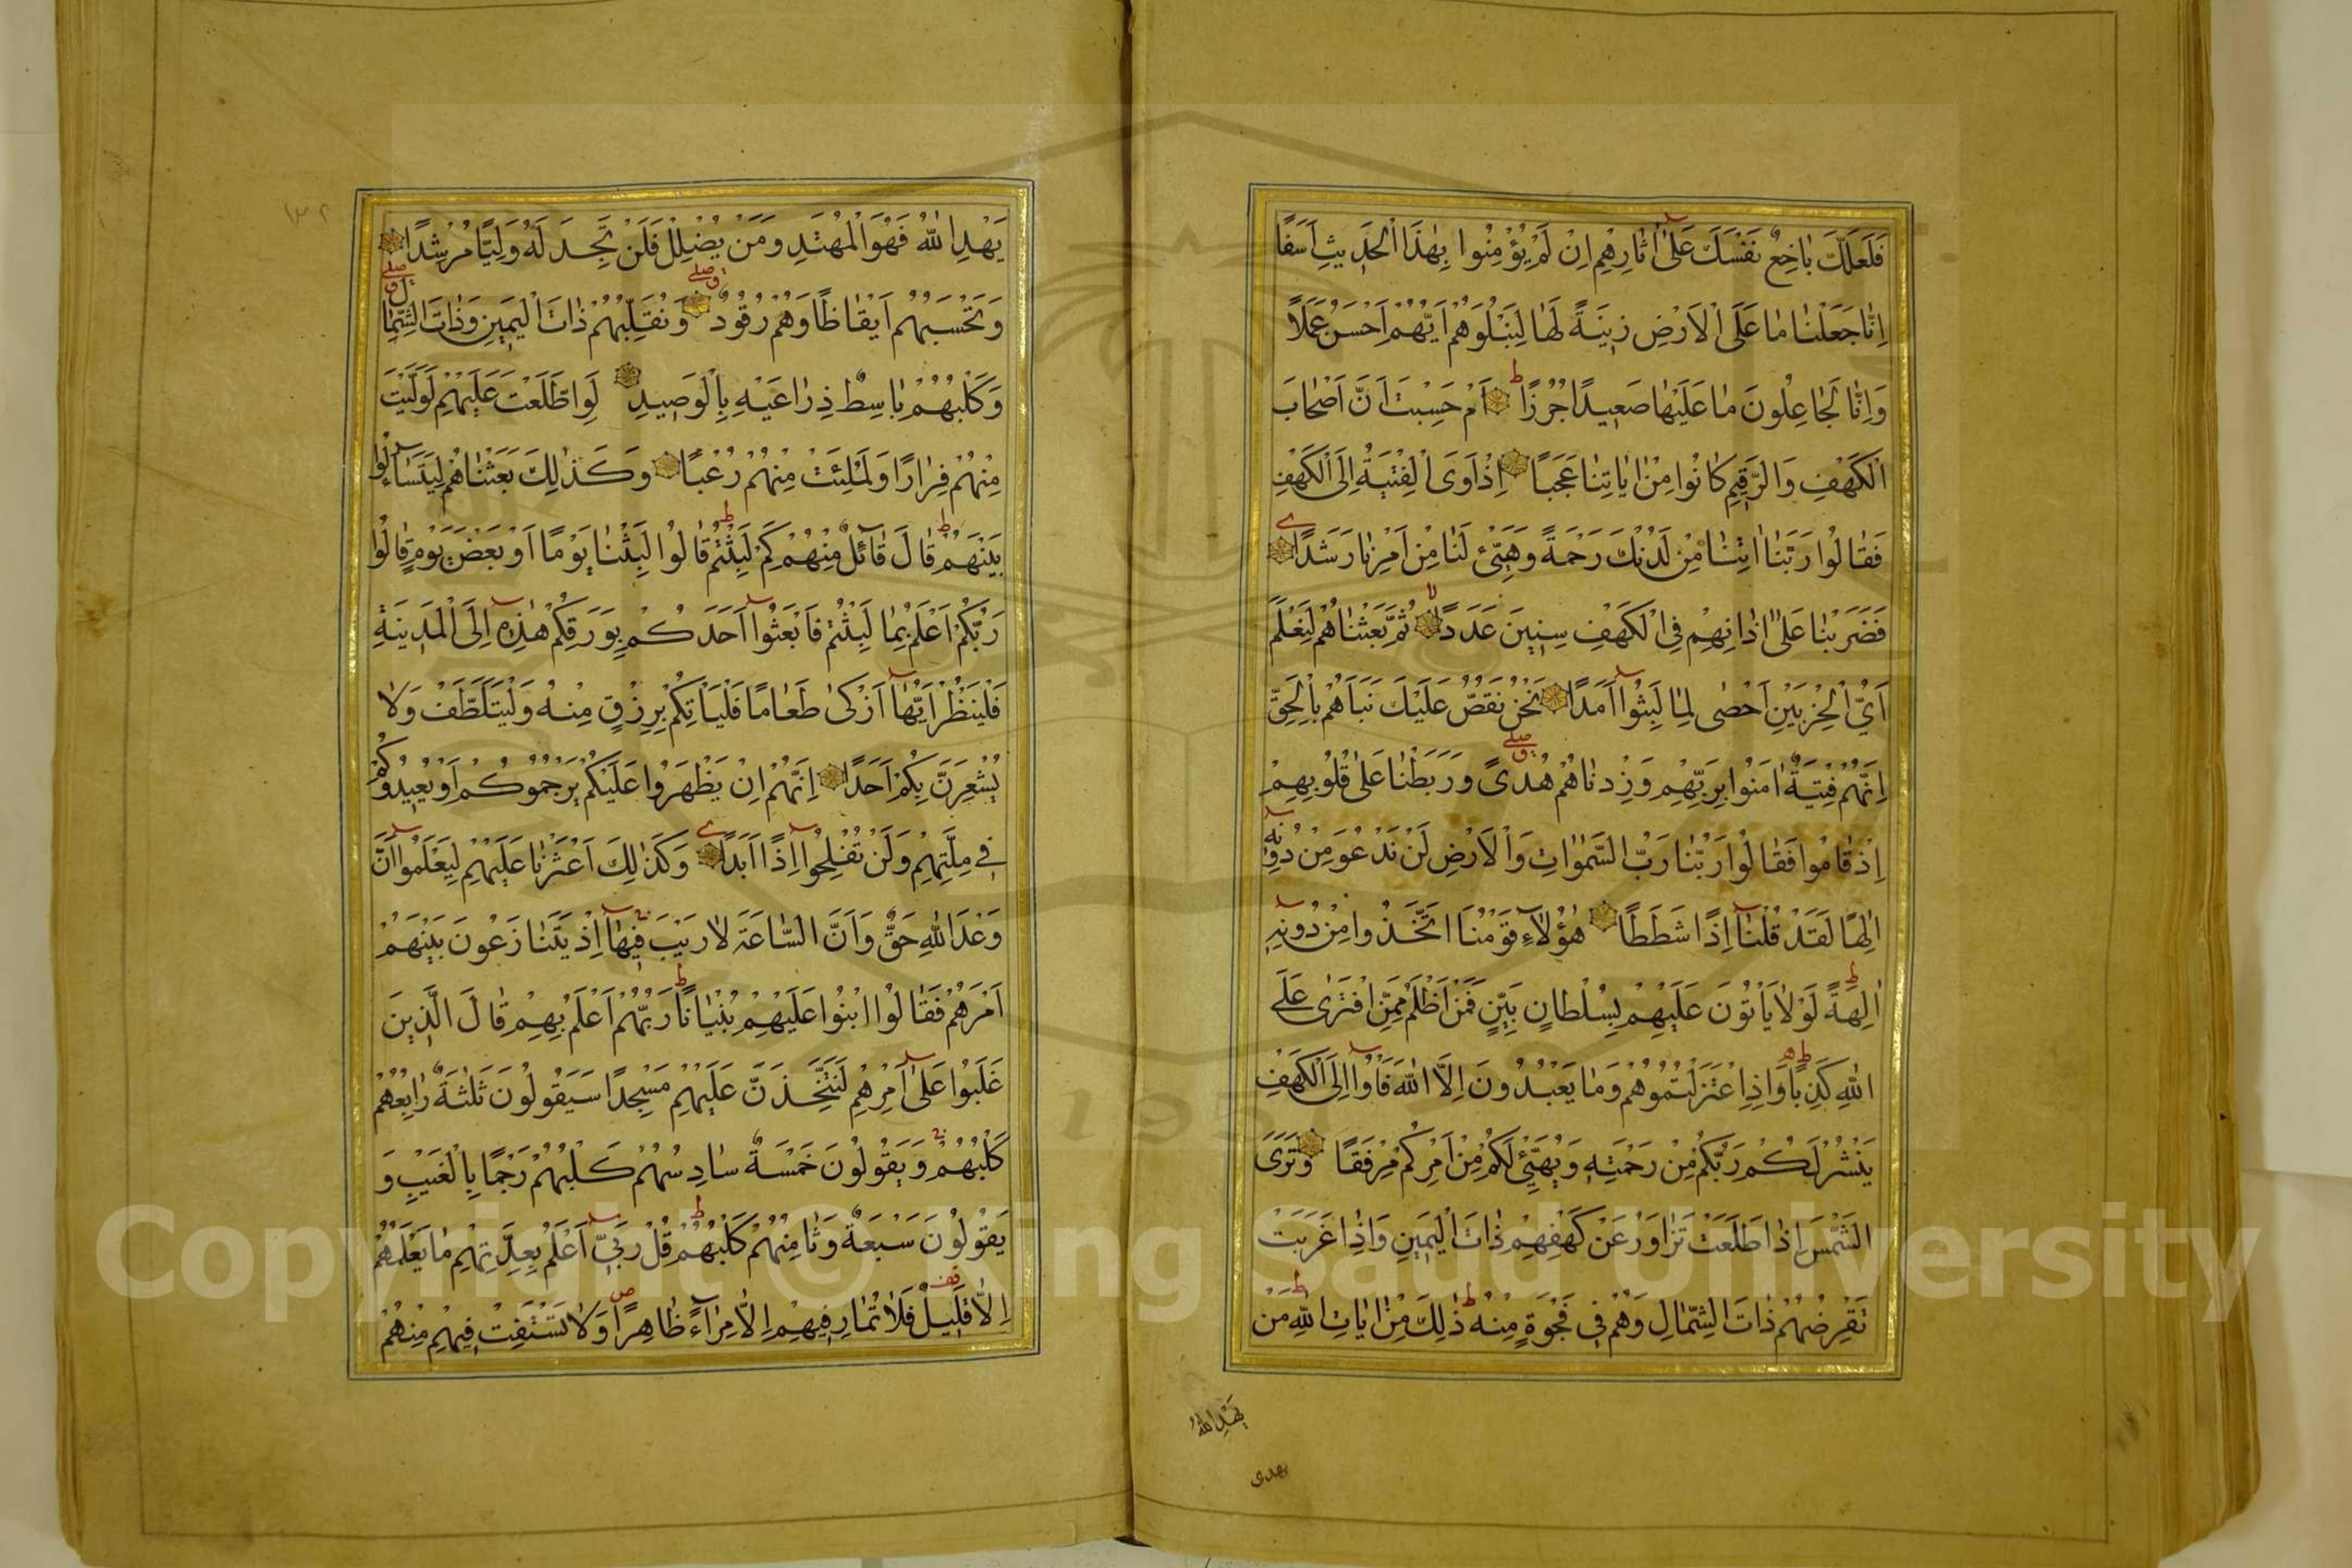 فَلَعَلَّكَ بَاخِعٌ نَفْسَكَ عَلٰٓى اٰثَارِهِمْ اِنْ لَمْ يُؤْمِنُوا بِهٰذَا الْحَدِيثِ اَسَفًا
اِنَّا جَعَلْنَا مَا عَلَى الْاَرْضِ زِينَةً لَهَا لِنَبْلُوَهُمْ اَيُّهُمْ اَحْسَنُ عَمَلًا
وَاِنَّا لَجَاعِلُونَ مَا عَلَيْهَا صَعِيدًا جُرُزًا ط اَمْ حَسِبْتَ اَنَّ اَصْحَابَ
الْكَهْفِ وَالرَّقِيمِ كَانُوا مِنْ اٰيَاتِنَا عَجَبًا اِذْ اَوَى الْفِتْيَةُ اِلَى الْكَهْفِ
فَقَالُوا رَبَّنَا اٰتِنَا مِنْ لَدُنْكَ رَحْمَةً وَهَيِّئْ لَنَا مِنْ اَمْرِنَا رَشَدًا
فَضَرَبْنَا عَلٰٓى اٰذَانِهِمْ فِي الْكَهْفِ سِنِينَ عَدَدًا لا ثُمَّ بَعَثْنَاهُمْ لِنَعْلَمَ
اَيُّ الْحِزْبَيْنِ اَحْصٰى لِمَا لَبِثُوٓا اَمَدًا نَحْنُ نَقُصُّ عَلَيْكَ نَبَاَهُمْ بِالْحَقِّ
اِنَّهُمْ فِتْيَةٌ اٰمَنُوا بِرَبِّهِمْ وَزِدْنَاهُمْ هُدًى وَرَبَطْنَا عَلٰى قُلُوبِهِمْ
اِذْ قَامُوا فَقَالُوا رَبُّنَا رَبُّ السَّمٰوَاتِ وَالْاَرْضِ لَنْ نَدْعُوَ مِنْ دُونِهٖٓ
اِلٰهًا لَقَدْ قُلْنَٓا اِذًا شَطَطًا هٰؤُلَآءِ قَوْمُنَا اتَّخَذُوا مِنْ دُونِهٖٓ
اٰلِهَةً ط لَوْلَا يَاْتُونَ عَلَيْهِمْ بِسُلْطَانٍ بَيِّنٍ فَمَنْ اَظْلَمُ مِمَّنِ افْتَرٰى عَلَى
اللّٰهِ كَذِبًا ط وَاِذِ اعْتَزَلْتُمُوهُمْ وَمَا يَعْبُدُونَ اِلَّا اللّٰهَ فَاْوُٓا اِلَى الْكَهْفِ
يَنْشُرْ لَكُمْ رَبُّكُمْ مِنْ رَحْمَتِهٖ وَيُهَيِّئْ لَكُمْ مِنْ اَمْرِكُمْ مِرْفَقًا وَتَرَى
الشَّمْسَ اِذَا طَلَعَتْ تَزَاوَرُ عَنْ كَهْفِهِمْ ذَاتَ الْيَمِينِ وَاِذَا غَرَبَتْ
تَقْرِضُهُمْ ذَاتَ الشِّمَالِ وَهُمْ فِي فَجْوَةٍ مِنْهُ ط ذٰلِكَ مِنْ اٰيَاتِ اللّٰهِ ط مَنْ
يَهْدِ اللّٰهُ
يهدى
١٣٢
يَهْدِ اللّٰهُ فَهُوَ الْمُهْتَدِ وَمَنْ يُضْلِلْ فَلَنْ تَجِدَ لَهُ وَلِيًّا مُرْشِدًا
وَتَحْسَبُهُمْ اَيْقَاظًا وَهُمْ رُقُودٌ وَنُقَلِّبُهُمْ ذَاتَ الْيَمِينِ وَذَاتَ الشِّمَالِ
وَكَلْبُهُمْ بَاسِطٌ ذِرَاعَيْهِ بِالْوَصِيدِ لَوِ اطَّلَعْتَ عَلَيْهِمْ لَوَلَّيْتَ
مِنْهُمْ فِرَارًا وَلَمُلِئْتَ مِنْهُمْ رُعْبًا وَكَذٰلِكَ بَعَثْنَاهُمْ لِيَتَسَآءَلُوا
بَيْنَهُمْ ط قَالَ قَآئِلٌ مِنْهُمْ كَمْ لَبِثْتُمْ ط قَالُوا لَبِثْنَا يَوْمًا اَوْ بَعْضَ يَوْمٍ قَالُوا
رَبُّكُمْ اَعْلَمُ بِمَا لَبِثْتُمْ فَابْعَثُوٓا اَحَدَكُمْ بِوَرِقِكُمْ هٰذِهٖٓ اِلَى الْمَدِينَةِ
فَلْيَنْظُرْ اَيُّهَآ اَزْكٰى طَعَامًا فَلْيَاْتِكُمْ بِرِزْقٍ مِنْهُ وَلْيَتَلَطَّفْ وَلَا
يُشْعِرَنَّ بِكُمْ اَحَدًا اِنَّهُمْ اِنْ يَظْهَرُوا عَلَيْكُمْ يَرْجُمُوكُمْ اَوْ يُعِيدُوكُمْ
فِي مِلَّتِهِمْ وَلَنْ تُفْلِحُوٓا اِذًا اَبَدًا وَكَذٰلِكَ اَعْثَرْنَا عَلَيْهِمْ لِيَعْلَمُوٓا اَنَّ
وَعْدَ اللّٰهِ حَقٌّ وَاَنَّ السَّاعَةَ لَا رَيْبَ فِيهَآ اِذْ يَتَنَازَعُونَ بَيْنَهُمْ
اَمْرَهُمْ فَقَالُوا ابْنُوا عَلَيْهِمْ بُنْيَانًا ط رَبُّهُمْ اَعْلَمُ بِهِمْ قَالَ الَّذِينَ
غَلَبُوا عَلٰٓى اَمْرِهِمْ لَنَتَّخِذَنَّ عَلَيْهِمْ مَسْجِدًا سَيَقُولُونَ ثَلٰثَةٌ رَابِعُهُمْ
كَلْبُهُمْ وَيَقُولُونَ خَمْسَةٌ سَادِسُهُمْ كَلْبُهُمْ رَجْمًا بِالْغَيْبِ وَ
يَقُولُونَ سَبْعَةٌ وَثَامِنُهُمْ كَلْبُهُمْ ط قُلْ رَبِّيٓ اَعْلَمُ بِعِدَّتِهِمْ مَا يَعْلَمُهُمْ
اِلَّا قَلِيلٌ فَلَا تُمَارِ فِيهِمْ اِلَّا مِرَآءً ظَاهِرًا ص وَلَا تَسْتَفْتِ فِيهِمْ مِنْهُمْ
Copyright © King Saud University